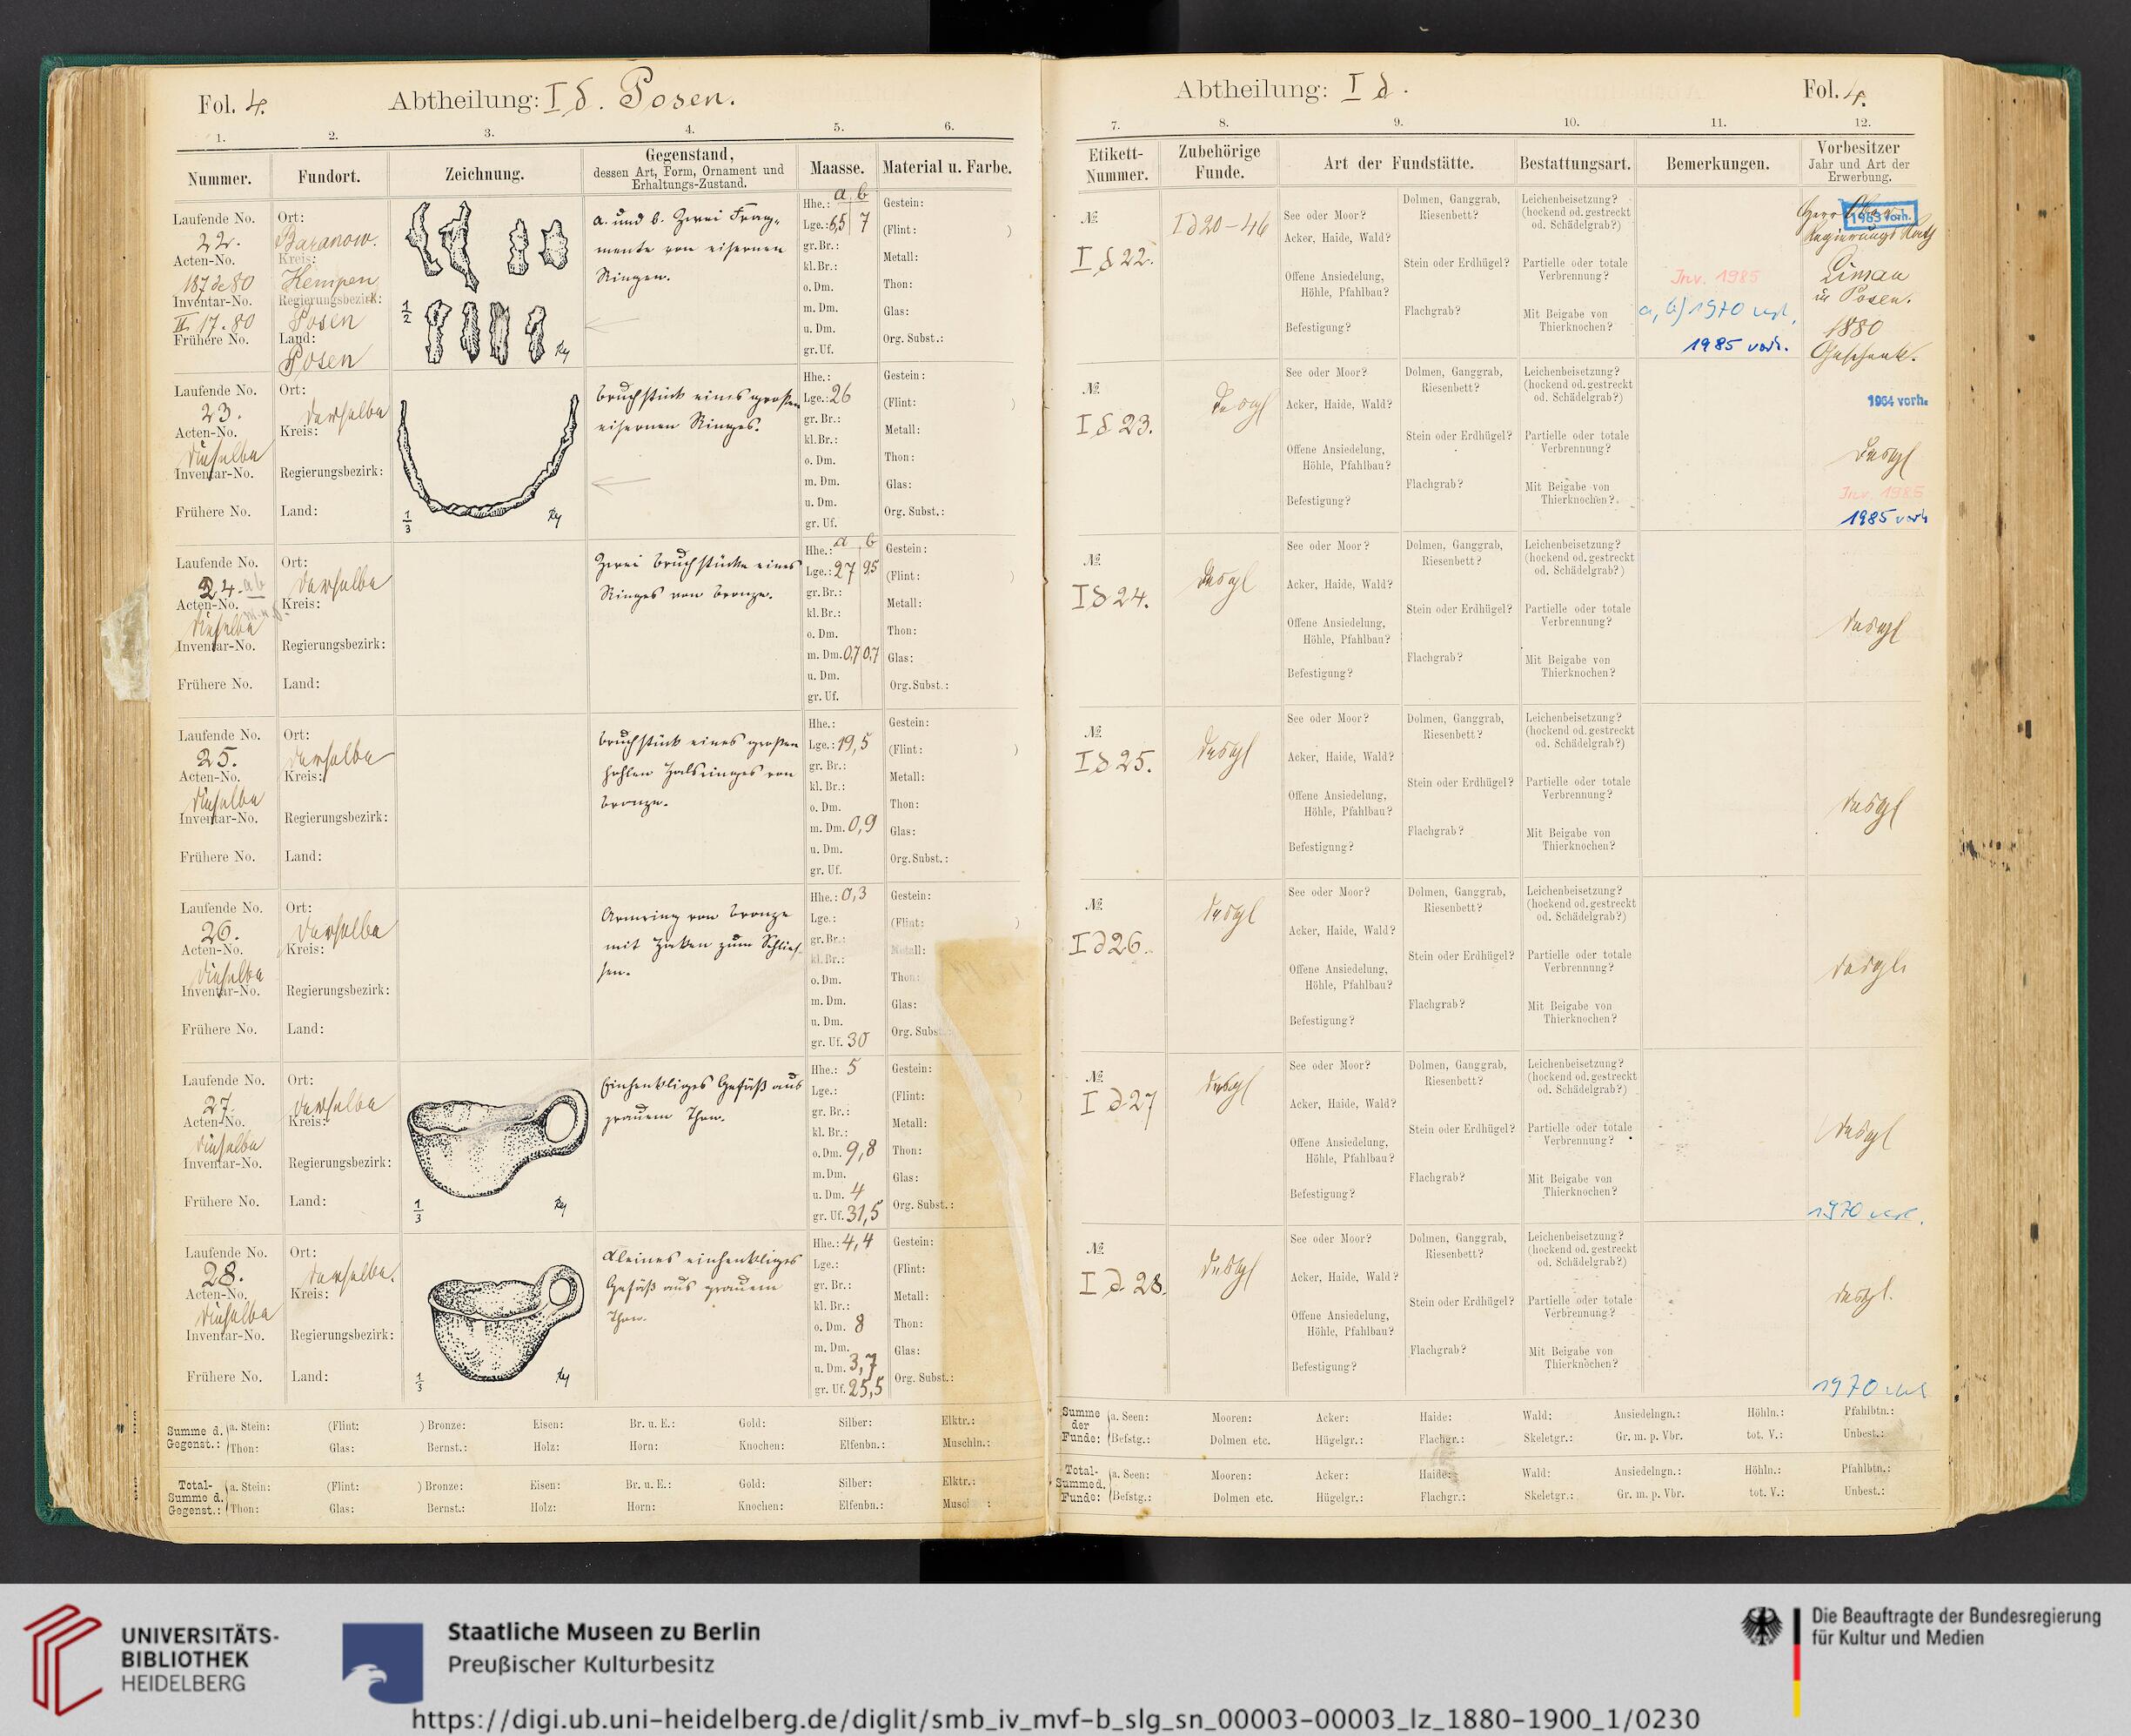 Fol. 4.
Abtheilung: I d. Posen.
1. 2. 3. 4. 5. 6.
Nummer. Fundort. Zeichnung. Gegenstand, dessen Art, Form, Ornament und Erhaltungs-Zustand. Maasse. Material u. Farbe.
Laufende No. 22.
Acten-No. 187 de 80
Inventar-No. II. 17. 80
Frühere No.
Ort: Baranow.
Kreis: Kempen
Regierungsbezirk: Posen
Land: Posen
1/2
a. und b. Zwei Frag-
mente von eisernen
Ringen.
a b
Hhe.:
Lge.: 6,5 7
gr. Br.:
kl. Br.:
o. Dm.
m. Dm.
u. Dm.
gr. Uf.
Gestein:
(Flint: )
Metall:
Thon:
Glas:
Org. Subst.:
Laufende No. 23.
Acten-No. dieselbe
Inventar-No.
Frühere No.
Ort: derselbe
Kreis:
Regierungsbezirk:
Land:
1/3
Bruchstück eines großen
eisernen Ringes.
Hhe.:
Lge.: 26
gr. Br.:
kl. Br.:
o. Dm.
m. Dm.
u. Dm.
gr. Uf.
Gestein:
(Flint: )
Metall:
Thon:
Glas:
Org. Subst.:
Laufende No. 24. a b
Acten-No. dieselbe
Inventar-No.
Frühere No.
Ort: derselbe
Kreis:
Regierungsbezirk:
Land:
Zwei Bruchstücke eines
Ringes von Bronze.
a b
Hhe.:
Lge.: 27 9,5
gr. Br.:
kl. Br.:
o. Dm.
m. Dm. 0,7 0,7
u. Dm.
gr. Uf.
Gestein:
(Flint: )
Metall:
Thon:
Glas:
Org. Subst.:
Laufende No. 25.
Acten-No. dieselbe
Inventar-No.
Frühere No.
Ort: derselbe
Kreis:
Regierungsbezirk:
Land:
Bruchstück eines großen
hohlen Halsringes von
Bronze.
Hhe.:
Lge.: 19,5
gr. Br.:
kl. Br.:
o. Dm.
m. Dm. 0,9
u. Dm.
gr. Uf.
Gestein:
(Flint: )
Metall:
Thon:
Glas:
Org. Subst.:
Laufende No. 26.
Acten-No. dieselbe
Inventar-No.
Frühere No.
Ort: derselbe
Kreis:
Regierungsbezirk:
Land:
Armring von Bronze
mit Haken zum Schlies-
sen.
Hhe.: 0,3
Lge.:
gr. Br.:
kl. Br.:
o. Dm.
m. Dm.
u. Dm.
gr. Uf. 30
Gestein:
(Flint: )
Metall:
Thon:
Glas:
Org. Subst.:
Laufende No. 27.
Acten-No. dieselbe
Inventar-No.
Frühere No.
Ort: derselbe
Kreis:
Regierungsbezirk:
Land:
1/3
Einhenkliges Gefäß aus
grauem Thon.
Hhe.: 5
Lge.:
gr. Br.:
kl. Br.:
o. Dm. 9,8
m. Dm.
u. Dm. 4
gr. Uf. 31,5
Gestein:
(Flint:
Metall:
Thon:
Glas:
Org. Subst.:
Laufende No. 28.
Acten-No. dieselbe
Inventar-No.
Frühere No.
Ort: derselbe.
Kreis:
Regierungsbezirk:
Land:
1/3
Kleines einhenkliges
Gefäß aus grauem
Thon.
Hhe.: 4,4
Lge.:
gr. Br.:
kl. Br.:
o. Dm. 8
m. Dm.
u. Dm. 3,7
gr. Uf. 25,5
Gestein:
(Flint:
Metall:
Thon:
Glas:
Org. Subst.:
Summe d. Gegenst.: a. Stein: (Flint: ) Bronze: Eisen: Br. u. E.: Gold: Silber: Elktr.:
Thon: Glas: Bernst.: Holz: Horn: Knochen: Elfenbn.: Muschln.:
Total-Summe d. Gegenst.: a. Stein: (Flint: ) Bronze: Eisen: Br. u. E.: Gold: Silber: Elktr.:
Thon: Glas: Bernst.: Holz: Horn: Knochen: Elfenbn.:
Abtheilung: I d.
Fol. 4.
7. 8. 9. 10. 11. 12.
Etikett-Nummer. Zubehörige Funde. Art der Fundstätte. Bestattungsart. Bemerkungen. Vorbesitzer Jahr und Art der Erwerbung.
№ I d 22.
I d 20-46
See oder Moor?
Acker, Haide, Wald?
Offene Ansiedelung, Höhle, Pfahlbau?
Befestigung?
Dolmen, Ganggrab, Riesenbett?
Stein oder Erdhügel?
Flachgrab?
Leichenbeisetzung? (hockend od. gestreckt od. Schädelgrab?)
Partielle oder totale Verbrennung?
Mit Beigabe von Thierknochen?
Inv. 1985
a, b) 1970 vorh.
1985 vorh.
Herr
1963 vorh.
Regierungs Rath
Liman
in Posen.
1880
Geschenk.
№ I d 23.
desgl
See oder Moor?
Acker, Haide, Wald?
Offene Ansiedelung, Höhle, Pfahlbau?
Befestigung?
Dolmen, Ganggrab, Riesenbett?
Stein oder Erdhügel?
Flachgrab?
Leichenbeisetzung? (hockend od. gestreckt od. Schädelgrab?)
Partielle oder totale Verbrennung?
Mit Beigabe von Thierknochen?
1964 vorh.
desgl
Inv. 1985
1985 vorh
№ I d 24.
desgl
See oder Moor?
Acker, Haide, Wald?
Offene Ansiedelung, Höhle, Pfahlbau?
Befestigung?
Dolmen, Ganggrab, Riesenbett?
Stein oder Erdhügel?
Flachgrab?
Leichenbeisetzung? (hockend od. gestreckt od. Schädelgrab?)
Partielle oder totale Verbrennung?
Mit Beigabe von Thierknochen?
desgl
№ I d 25.
desgl
See oder Moor?
Acker, Haide, Wald?
Offene Ansiedelung, Höhle, Pfahlbau?
Befestigung?
Dolmen, Ganggrab, Riesenbett?
Stein oder Erdhügel?
Flachgrab?
Leichenbeisetzung? (hockend od. gestreckt od. Schädelgrab?)
Partielle oder totale Verbrennung?
Mit Beigabe von Thierknochen?
desgl
№ I d 26.
desgl
See oder Moor?
Acker, Haide, Wald?
Offene Ansiedelung, Höhle, Pfahlbau?
Befestigung?
Dolmen, Ganggrab, Riesenbett?
Stein oder Erdhügel?
Flachgrab?
Leichenbeisetzung? (hockend od. gestreckt od. Schädelgrab?)
Partielle oder totale Verbrennung?
Mit Beigabe von Thierknochen?
desgl.
№ I d 27
desgl
See oder Moor?
Acker, Haide, Wald?
Offene Ansiedelung, Höhle, Pfahlbau?
Befestigung?
Dolmen, Ganggrab, Riesenbett?
Stein oder Erdhügel?
Flachgrab?
Leichenbeisetzung? (hockend od. gestreckt od. Schädelgrab?)
Partielle oder totale Verbrennung?
Mit Beigabe von Thierknochen?
desgl
1970 vorh.
№ I d 28.
desgl
See oder Moor?
Acker, Haide, Wald?
Offene Ansiedelung, Höhle, Pfahlbau?
Befestigung?
Dolmen, Ganggrab, Riesenbett?
Stein oder Erdhügel?
Flachgrab?
Leichenbeisetzung? (hockend od. gestreckt od. Schädelgrab?)
Partielle oder totale Verbrennung?
Mit Beigabe von Thierknochen?
desgl.
1970 vorh
Summe der Funde: a. Seen: Mooren: Acker: Haide: Wald: Ansiedelngn.: Höhln.: Pfahlbtn.:
Befstg.: Dolmen etc. Hügelgr.: Flachgr.: Skeletgr.: Gr. m. p. Vbr. tot. V.: Unbest.:
Total-Summe d. Funde: a. Seen: Mooren: Acker: Haide: Wald: Ansiedelngn.: Höhln.: Pfahlbtn.:
Befstg.: Dolmen etc. Hügelgr.: Flachgr.: Skeletgr.: Gr. m. p. Vbr. tot. V.: Unbest.:
UNIVERSITÄTS-
BIBLIOTHEK
HEIDELBERG
Staatliche Museen zu Berlin
Preußischer Kulturbesitz
Die Beauftragte der Bundesregierung
für Kultur und Medien
https://digi.ub.uni-heidelberg.de/diglit/smb_iv_mvf-b_slg_sn_00003-00003_lz_1880-1900_1/0230